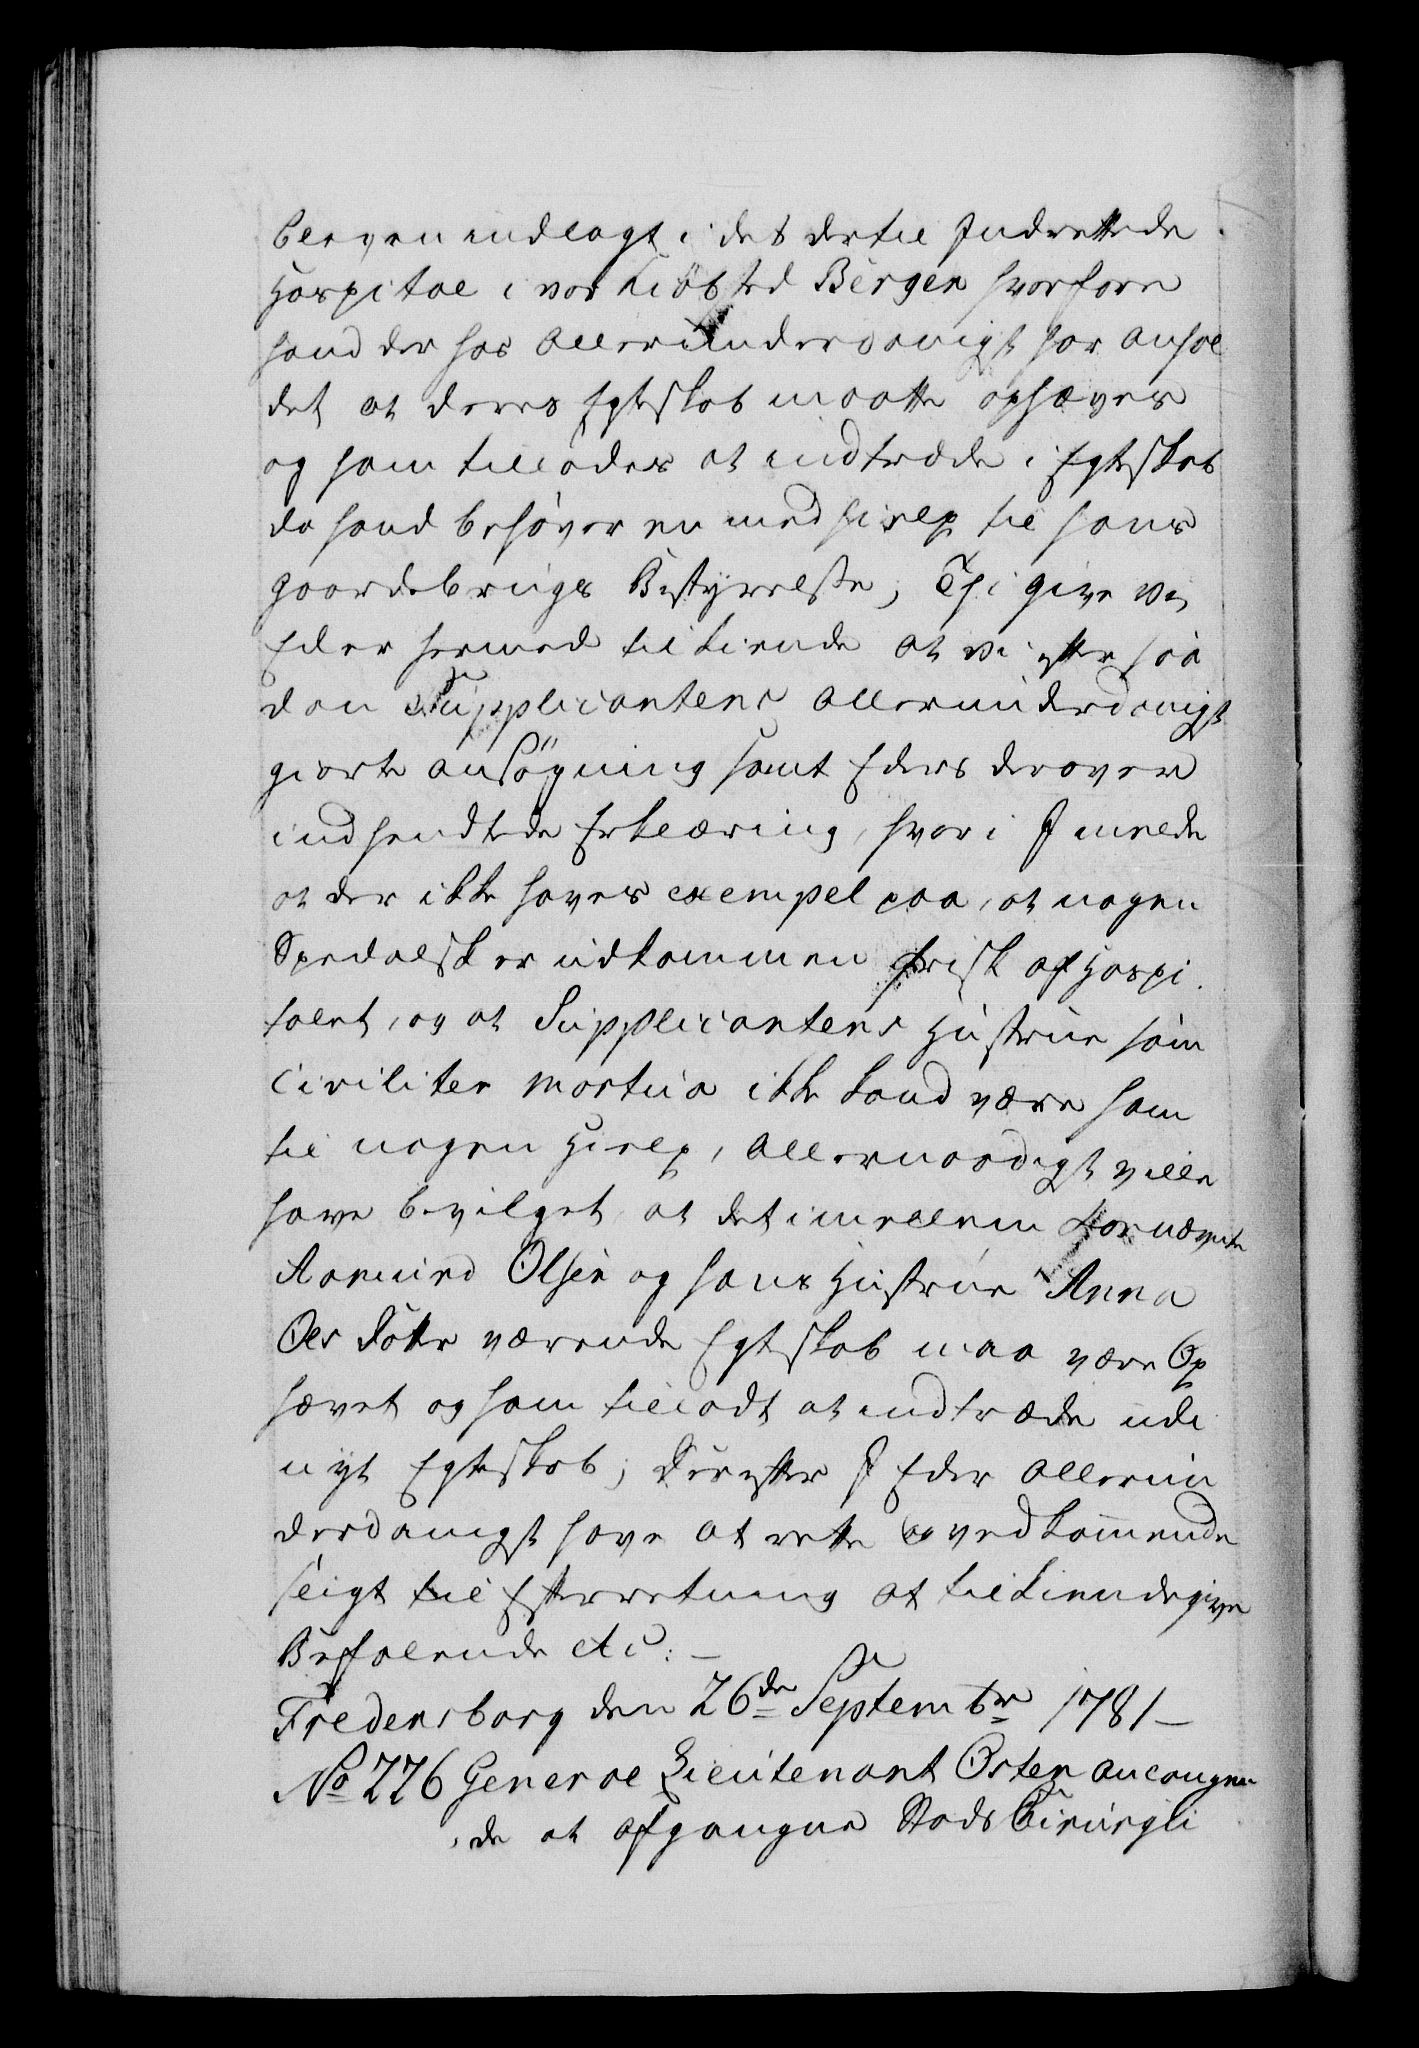 bleven indlagt i det dertil Indrettede
Hospital i vor Kiöbsted Bergen hvorfore
hand der hos allerunderdanigst har anhol
det at deres Egteskab maatte ophæves
og ham tillades at indtræde i Egteskab
da hand behøver en medhielp til hans
gaardsbrugs Bestyrelse, Thi give Vi
Eder hermed tilkiende at vi efter saa
dan Supplicantens allerunderdanigst
giorte ansøgning samt Eders derover
indsendte Erklæring, hvori I melde
at der ikke haves exempel paa, at nogen
Spedalsk er udkommen frisk af Hospi
talet, og at Supplicantens Hustrue som
civiliter mortua ikke kand være ham
til nogen Hielp, allernaadigst ville
have bevilget at det imellem Fornævnte
Aamund Olsen og hans Hustrue Anna
Ols Datter værende Egteskab maa være Op
hævet og ham tilladt at indtræde udi
nyt Egteskab; Derefter I Eder allerun
derdanigst have at rette og vedkommende
sligt til Efterretning at tilkiendegive
Befalende etc: –
Fredensborg den 26de Septembr 1781 –
No 226 General Lieutenant Osten anlangen
de at afgangne Stads Chirurgi